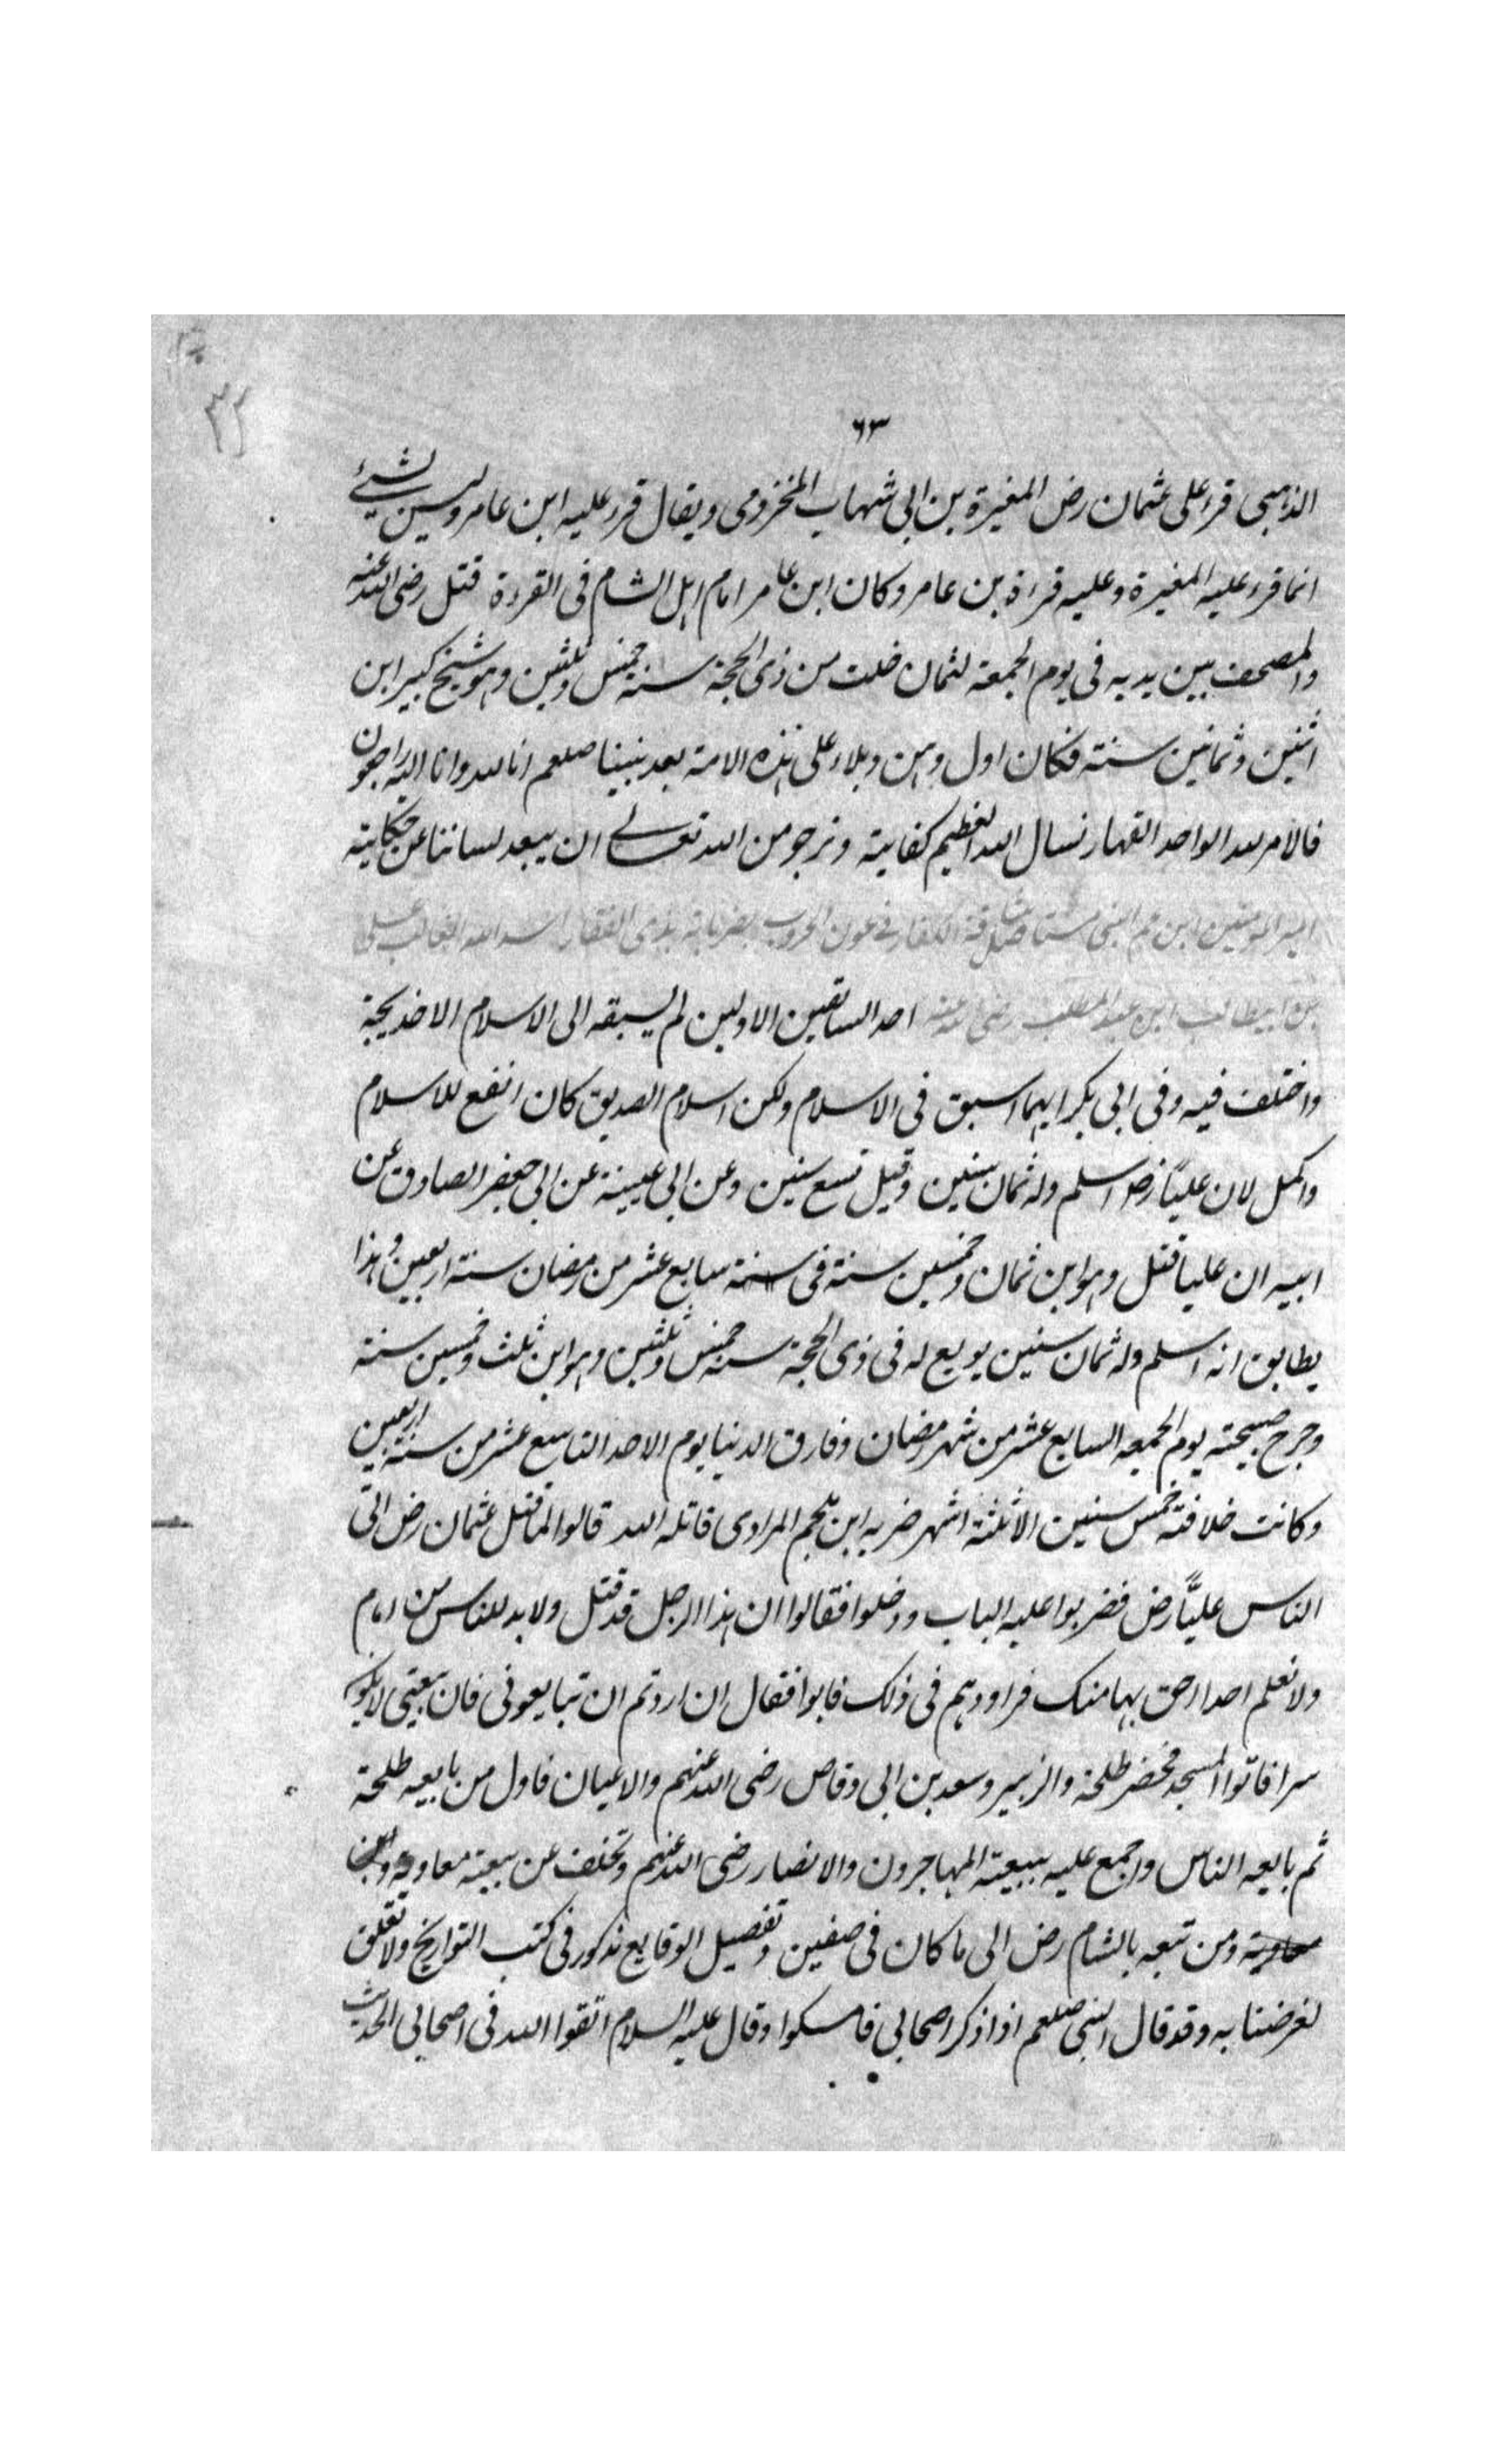 ٣٢
٦٣
الذهبى قرء على عثمان رض المغيرة بن ابى شهاب المخزومى ويقال قرء عليه ابن عامر وليس بشئ
انما قرء عليه المغيرة وعليه قراءة بن عامر وكان ابن عامر امام اهل الشام فى القراءة قتل رضى الله عنه
والمصحف بين يديه فى يوم الجمعة لثمان خلت من ذى الحجة سنة خمس وثلثين وهو شيخ كبير ابن
اثنين وثمانين سنة فكان اول وهن وبلاء على هذه الامة بعد نبينا صلعم انا لله وانا اليه راجعون
فالامر لله الواحد القهار نسال الله العظيم كفاية ونرجو من الله تعالى ان يبعد لساننا عن حكاية
امير المومنين ابن عم النبى الكفار فى الحروب بضرباته بذى الفقار اسد الله الغالب على
بن ابيطالب ابن عبد المطلب رضى الله عنه احد السابقين الاولين لم يسبقه الى الاسلام الا خديجة
واختلف فيه وفى ابى بكر ايهما اسبق فى الاسلام ولكن اسلام الصديق كان انفع للاسلام
واكمل لان عليًا رض اسلم وله ثمان سنين وقيل تسع سنين وعن ابى عيينة عن ابى جعفر الصادق عن
ابيه ان عليا قتل وهو ابن ثمان وخمسين سنة فى سنة سابع عشر من رمضان سنة اربعين وهذا
يطابق انه اسلم وله ثمان سنين بويع له فى ذى الحجة سنة خمس وثلثين وهو ابن ثلث وخمسين سنة
وجرح صبيحة يوم الجمعه السابع عشر من شهر رمضان وفارق الدنيا يوم الاحد التاسع عشر من سنة اربعين
وكانت خلافته خمس سنين الا ثلثة اشهر ضربه ابن ملجم المرادى قاتله الله قالوا لما قتل عثمان رض اتى
الناس عليًّا رض فضربوا عليه الباب ودخلوا فقالوا ان هذا الرجل قد قتل ولا بد للناس من امام
ولا نعلم احدا احق بها منك فراودهم فى ذلك فابوا فقال ان اردتم ان تبايعونى فان بيعتى لا يكون
سرا فاتوا المسجد فحضر طلحة والزبير وسعد بن ابى وقاص رضى الله عنهم والاعيان فاول من بايعه طلحة
ثم بايعه الناس واجمع عليه ببيعته المهاجرون والانصار رضى الله عنهم وتخلف عن بيعته معاوية
معاوية ومن تبعه بالشام رض الى ما كان فى صفين وتفصيل الوقايع مذكور فى كتب التواريخ ولا تعلق
لغرضنا به وقد قال النبى صلعم اذا ذكر اصحابى فامسكوا وقال عليه السلام اتقوا الله فى اصحابى الحديث